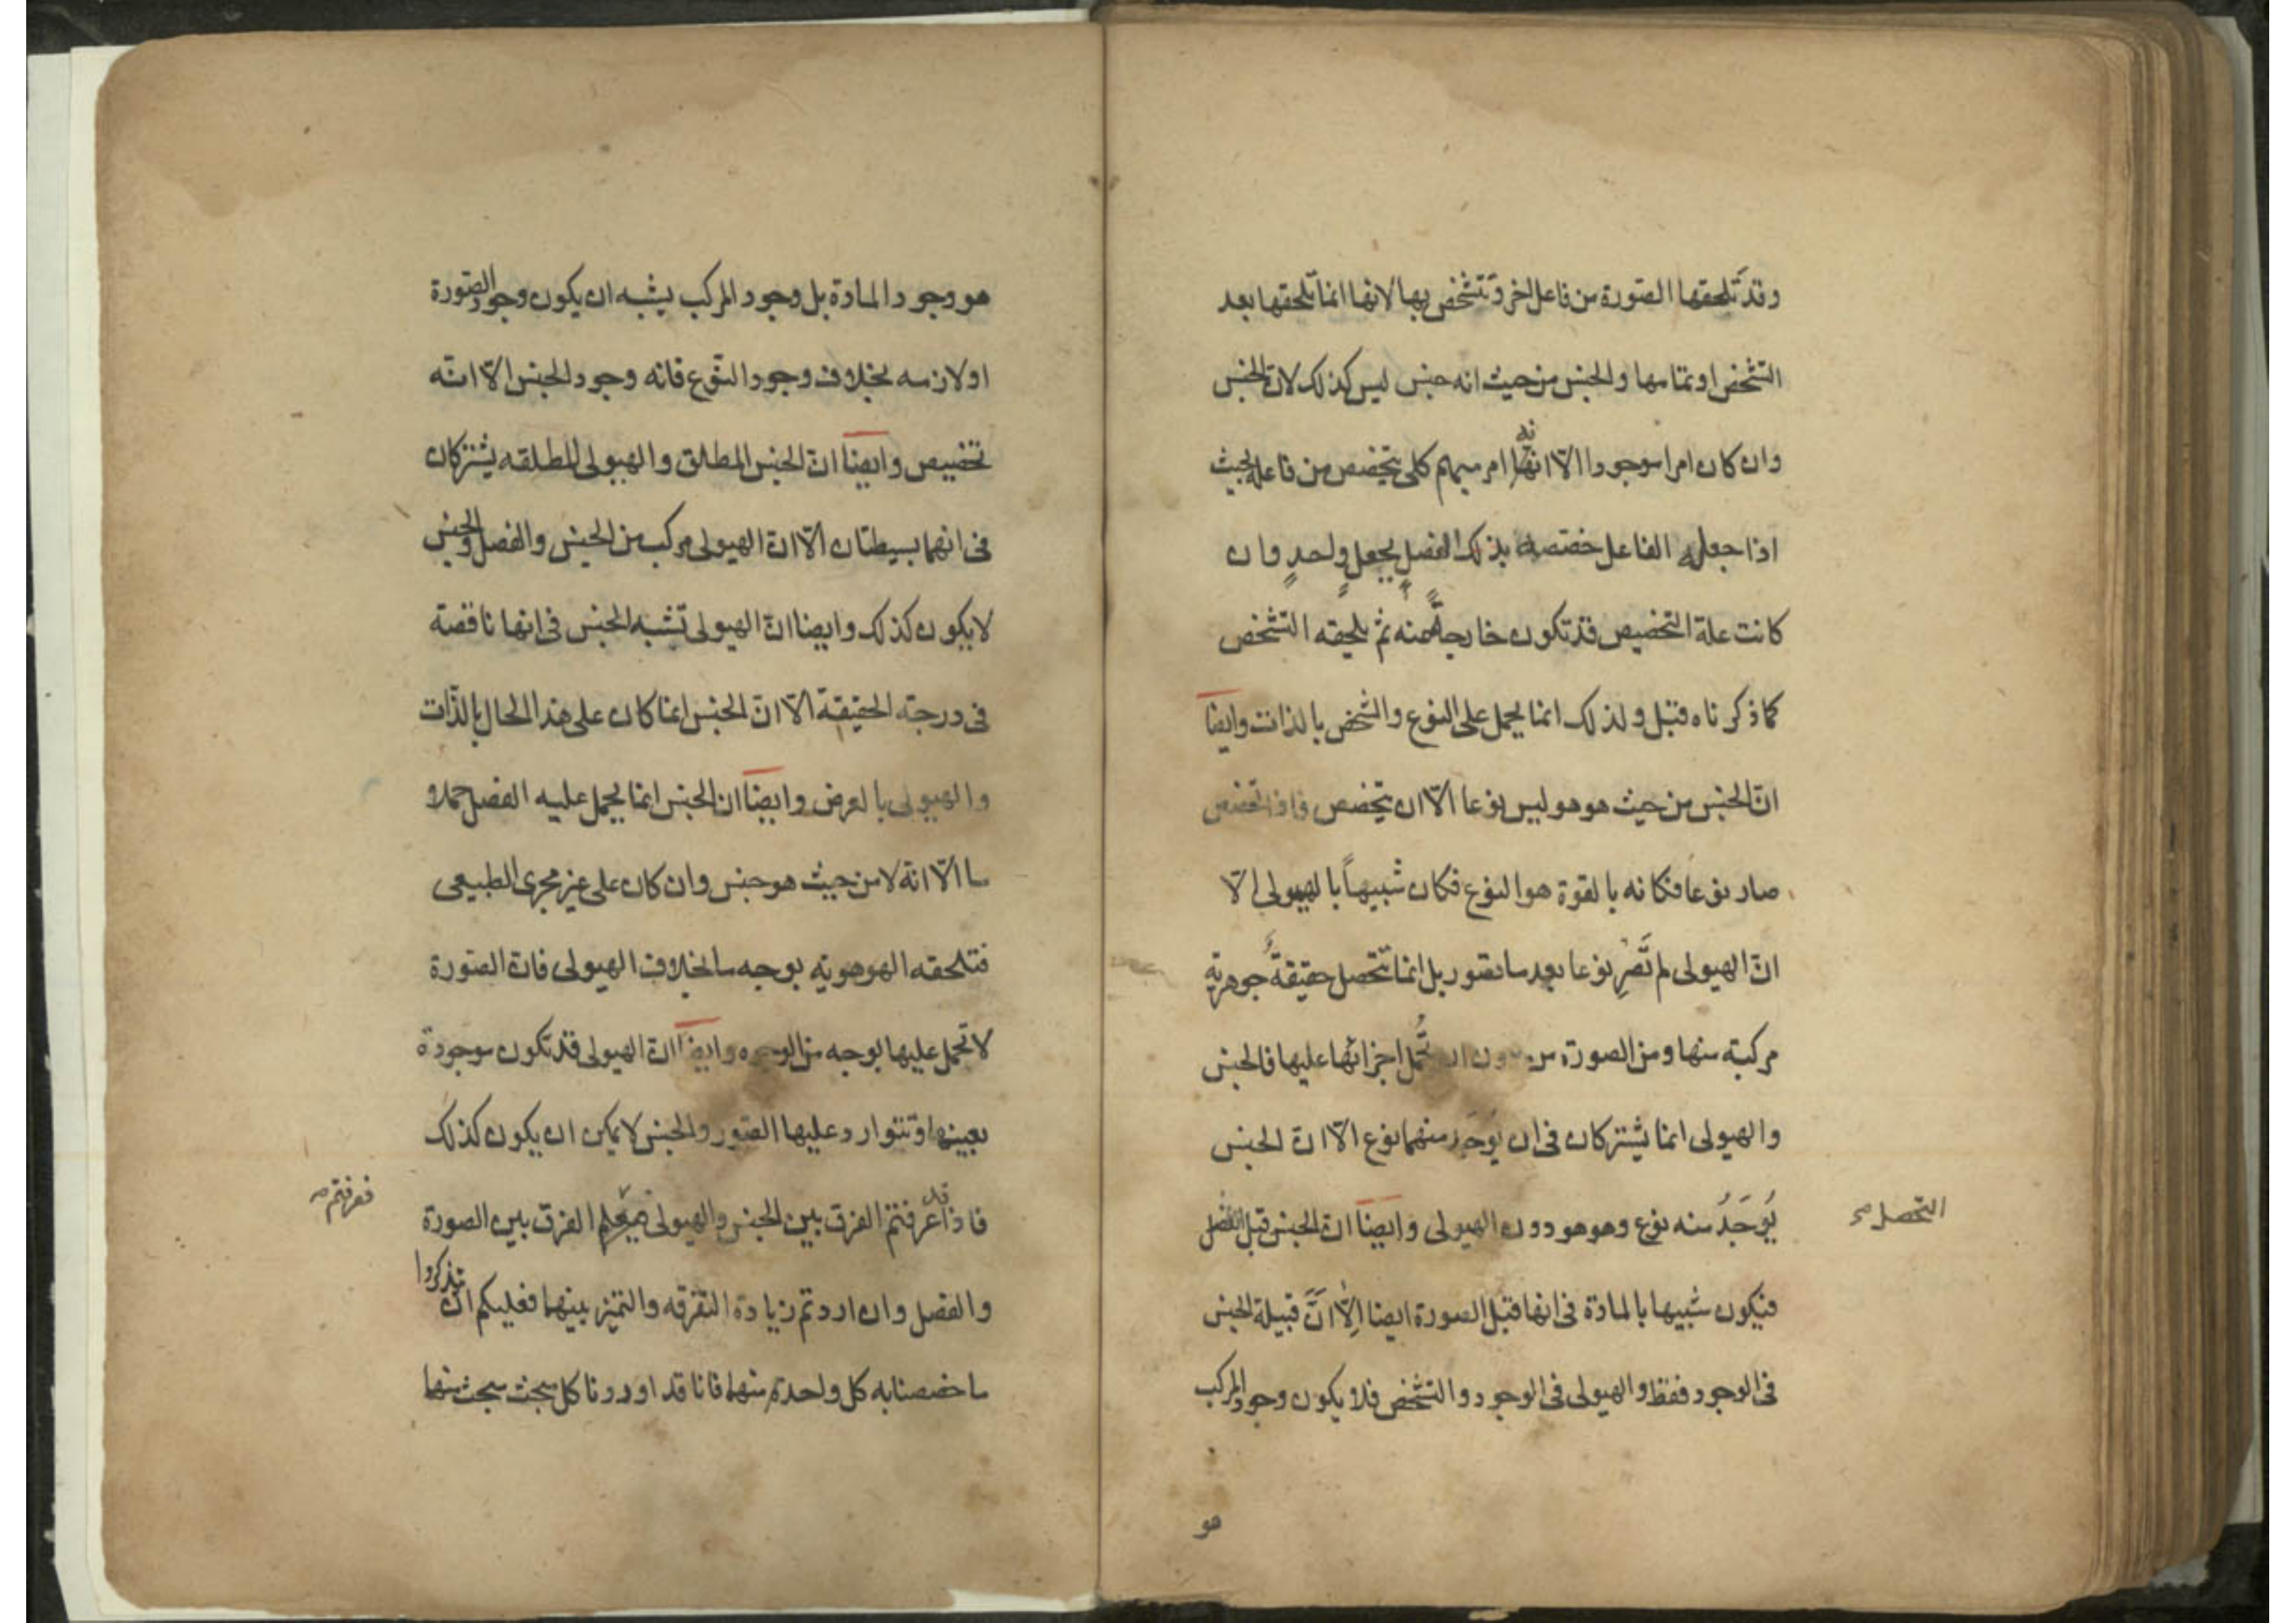 وقد تلحقها الصورة من فاعل اخر وتتشخص بها لانها انما تلحقها بعد
التشخص او تمامها والجنس من حيث انه جنس ليس كذلك لان الجنس
وان كان امرا موجودا الا انه امر مبهم كلى يتخصص من فاعله بحيث
اذا جعله الفاعل خصصه بذلك الفصل بجعلٍ واحدٍ وان
كانت علة التخصيص قد تكون خارجةً منه ثم يلحقه التشخص
كما ذكرناه قبل ولذلك انما يحمل على النوع والشخص بالذات وايضا
انّ الجنس من حيث هو هو ليس نوعا الّا ان يتخصص فاذا تخصص
صار نوعا فكانه بالقوة هو النوع فكان شبيهاً بالهيولى الّا
انّ الهيولى لم تَصِر نوعا بعد ما تصور بل انما تتحصل حقيقةٌ جوهرية
مركبة منها ومن الصورة من دون ان تُحمل اجزائها عليها فالجنس
والهيولى انما يشتركان فى ان يوجد منهما نوع الّا انّ الجنس
يُوجَدُ منه نوع وهو هو دون الهيولى وايضاً انّ الجنس قبل الفصل
التحصل صح
فيكون شبيها بالمادّة فى انها قبل الصورة ايضا الّا انَّ قبيلة الجنس
فى الوجود فقط والهيولى فى الوجود والتشخص فلا يكون وجود المركب
هو
هو وجود المادة بل وجود المركب يشبه ان يكون وجود الصورة
او لازمه بخلاف وجود النوع فانه وجود الجنس الّا انّه
تخصيص وايضاً انّ الجنس المطلق والهيولى المطلقه يشتركان
فى انهما بسيطتان الّا انّ الهيولى مركب من الجنس والفصل والجنس
لا يكون كذلك وايضا انّ الهيولى تشبه الجنس فى انها ناقصة
فى درجة الحقيقة الّا انّ الجنس انما كان على هذا الحال بالذّات
والهيولى بالعرض وايضاً ان الجنس انما يحمل عليه الفصل حملا
ما الّا انّه لا من حيث هو جنس وان كان على غير مجرى الطبيعى
فتلحقه الهوهوية بوجه ما بخلاف الهيولى فانّ الصورة
لا تحمل عليها بوجه من الوجوه وايضاً انّ الهيولى قد تكون موجودة
بعينها وتتوارد عليها الصور والجنس لا يمكن ان يكون كذلك
فاذا قد عرفتم الفرق بين الجنس والهيولى الفرق بين الصورة
فعرفتم صح
والفصل وان اردتم زيادة التفرقه والتميز بينهما فعليكم ان تذكروا
ما خصصنا به كل واحدة منهما فانا قد اوردنا كل مبحث مبحث منها